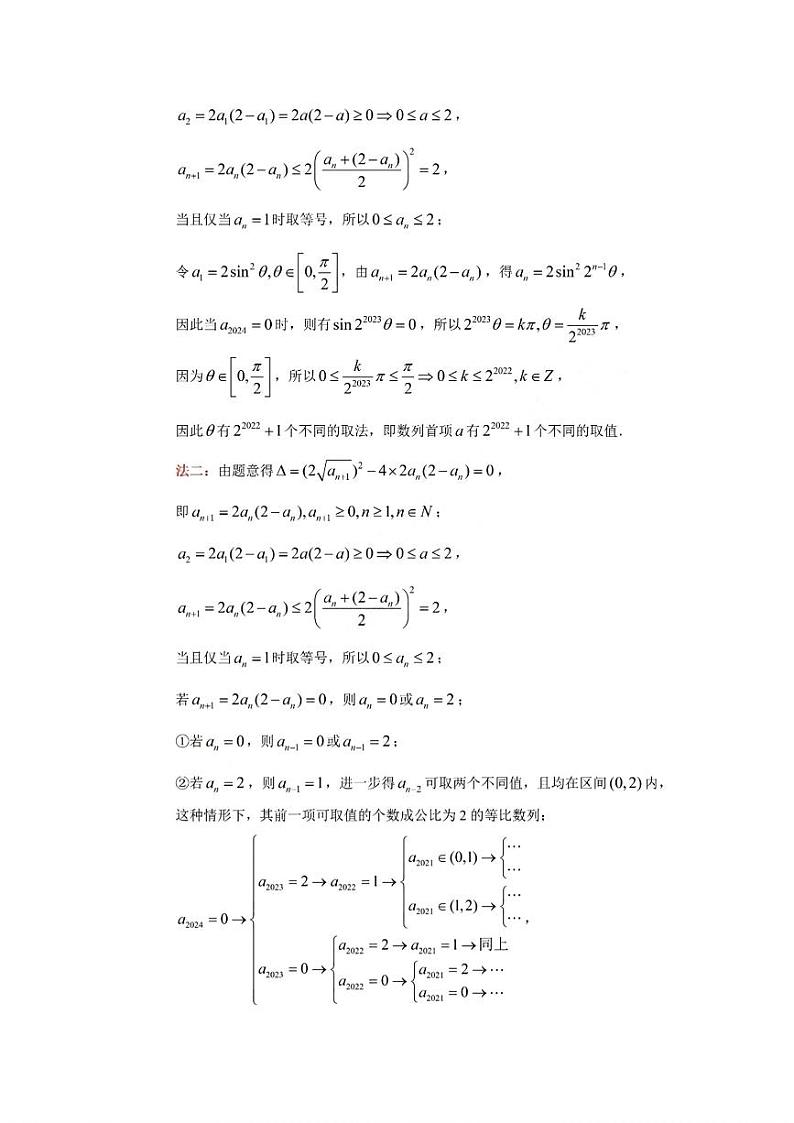 a₂ = 2a₁(2−a₁) = 2a(2−a) ≥ 0 ⇒ 0 ≤ a ≤ 2，
aₙ₊₁ = 2aₙ(2−aₙ) ≤ 2((aₙ+(2−aₙ))/2)² = 2，
当且仅当 aₙ = 1 时取等号，所以 0 ≤ aₙ ≤ 2；
令 a₁ = 2sin²θ, θ∈[0, π/2]，由 aₙ₊₁ = 2aₙ(2−aₙ)，得 aₙ = 2sin² 2ⁿ⁻¹θ，
因此当 a₂₀₂₄ = 0 时，则有 sin 2²⁰²³θ = 0，所以 2²⁰²³θ = kπ, θ = (k/2²⁰²³)π，
因为 θ∈[0, π/2]，所以 0 ≤ (k/2²⁰²³)π ≤ π/2 ⇒ 0 ≤ k ≤ 2²⁰²², k∈Z，
因此 θ 有 2²⁰²²+1 个不同的取法，即数列首项 a 有 2²⁰²²+1 个不同的取值.
法二：由题意得 Δ = (2√aₙ₊₁)² − 4×2aₙ(2−aₙ) = 0，
即 aₙ₊₁ = 2aₙ(2−aₙ), aₙ₊₁ ≥ 0, n ≥ 1, n∈N；
a₂ = 2a₁(2−a₁) = 2a(2−a) ≥ 0 ⇒ 0 ≤ a ≤ 2，
aₙ₊₁ = 2aₙ(2−aₙ) ≤ 2((aₙ+(2−aₙ))/2)² = 2，
当且仅当 aₙ = 1 时取等号，所以 0 ≤ aₙ ≤ 2；
若 aₙ₊₁ = 2aₙ(2−aₙ) = 0，则 aₙ = 0 或 aₙ = 2；
①若 aₙ = 0，则 aₙ₋₁ = 0 或 aₙ₋₁ = 2；
②若 aₙ = 2，则 aₙ₋₁ = 1，进一步得 aₙ₋₂ 可取两个不同值，且均在区间 (0,2) 内，
这种情形下，其前一项可取值的个数成公比为 2 的等比数列；
a₂₀₂₄ = 0 → {
a₂₀₂₃ = 2 → a₂₀₂₂ = 1 → {
a₂₀₂₁ ∈ (0,1) → { ⋯
⋯
a₂₀₂₁ ∈ (1,2) → { ⋯
⋯ ，
a₂₀₂₃ = 0 → {
a₂₀₂₂ = 2 → a₂₀₂₁ = 1 → 同上
a₂₀₂₂ = 0 → { a₂₀₂₁ = 2 → ⋯
a₂₀₂₁ = 0 → ⋯